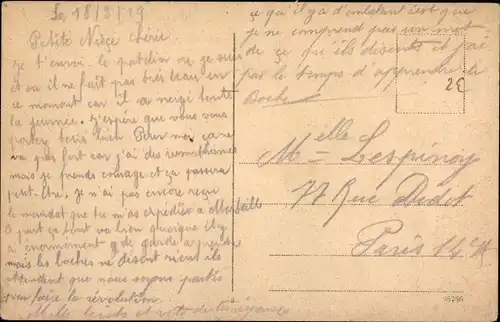 Le 18/3/19
Petite Nièce chérie
je t'envoie le patelin ou je suis
et ou il ne fait pas très beau en
ce moment car il a neigé toute
la journée. J'espère que vous vous
portez tous bien Pour moi ça ne
va pas fort car j'ai des rhumatismes
mais je prends courage et ça passera
peut-être. Je n'ai pas encore reçu
le mandat que tu m'as expédié à Marseille
A part ça tout va bien quoique il y
a énormement de garde a prendre
mais les boches ne disent rien ils
attendent que nous soyons partis
pour faire la révolution.
Mille
ce qu'il y a d'embêtant c'est que
je ne comprend pas un mot
de ce qu'ils disent et j'ai
pas le temps d'apprendre le
Boche
2E
Melle Lespinoy
77 Rue Didot
Paris 14e